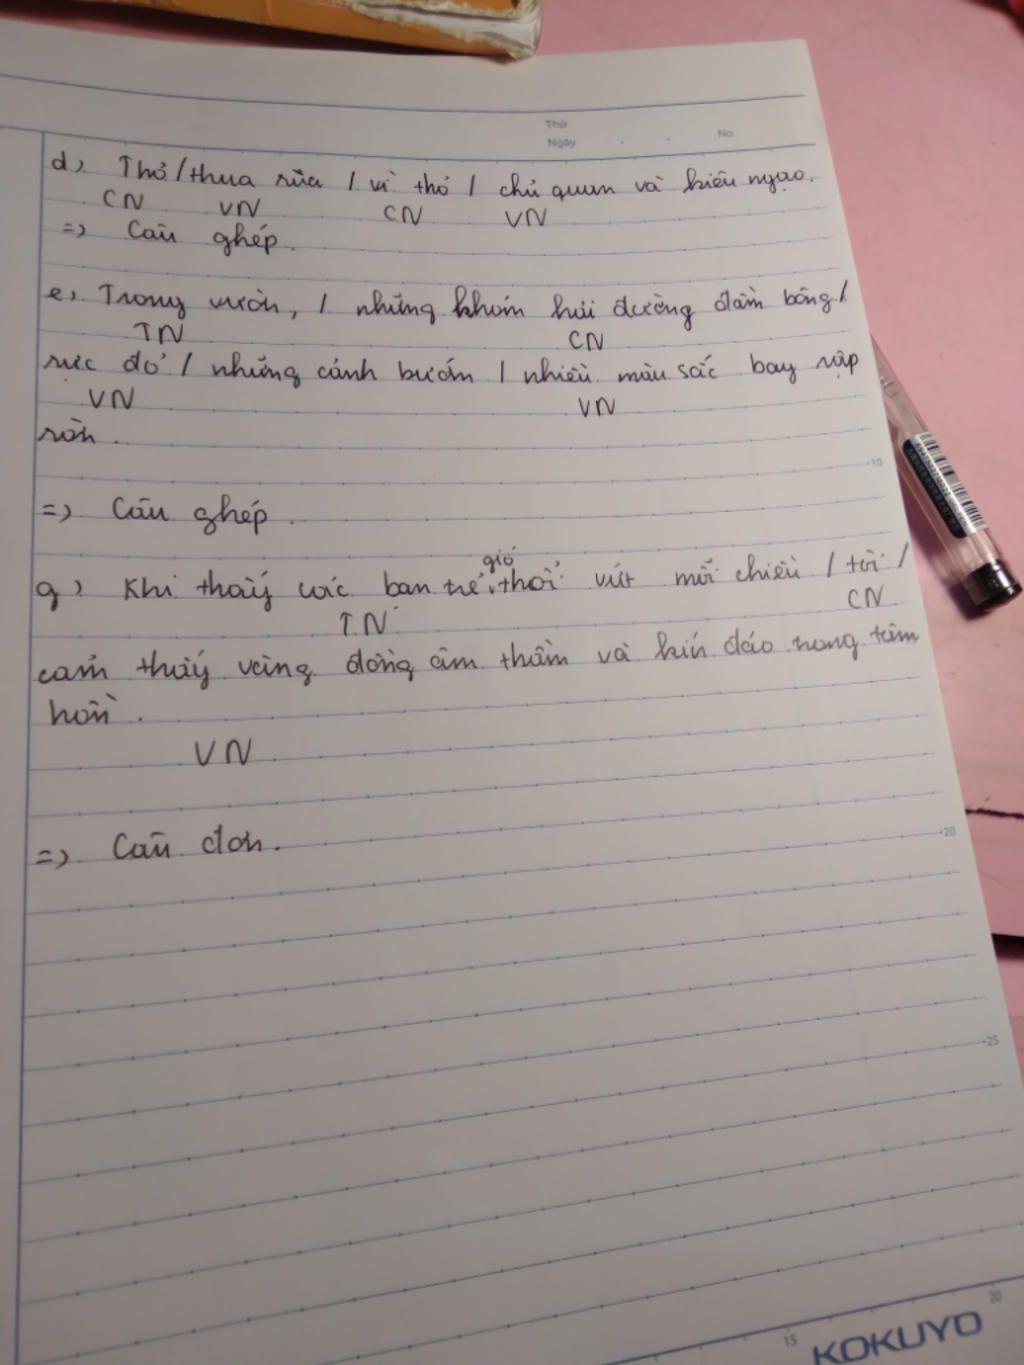 Thứ
Ngày
No.
d, Thỏ / thua rùa / vì thỏ / chủ quan và kiêu ngạo.
CN VN CN VN
=> Câu ghép.
e, Trong vườn, / những khóm hải đường đâm bông /
TN CN
rực đỏ / những cánh bướm / nhiều màu sắc bay rập
VN VN
rờn.
10
=> Câu ghép.
gió
g, Khi thấy các bạn trẻ thổi vút mỗi chiều / tôi /
TN CN
cảm thấy vàng đồng âm thầm và kín đáo trong tâm
hồn.
VN
=> Câu đơn.
20
25
15 20
KOKUYO